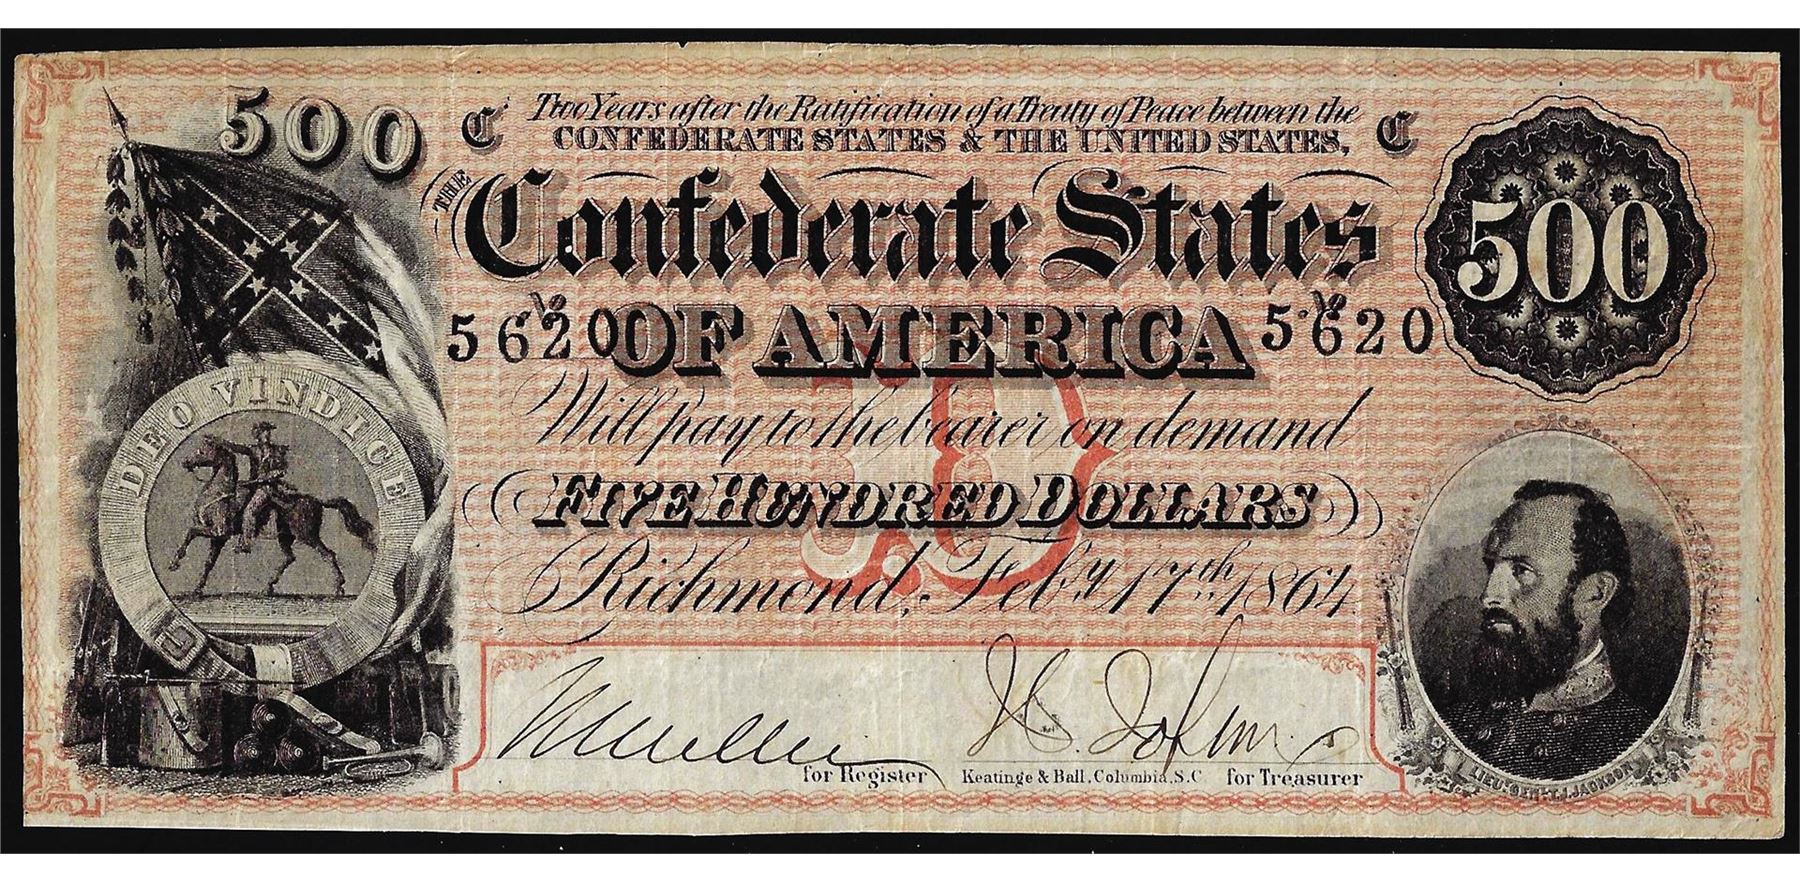 500
C Two Years after the Ratification of a Treaty of Peace between the C
CONFEDERATE STATES & THE UNITED STATES,
THE Confederate States
500
No 5620 OF AMERICA No 5620
DEO VINDICE
Will pay to the bearer on demand
D
FIVE HUNDRED DOLLARS
Richmond, Feby. 17th. 1864
for Register Keatinge & Ball, Columbia, S.C. for Treasurer
LIEUT. GENL. T.J. JACKSON